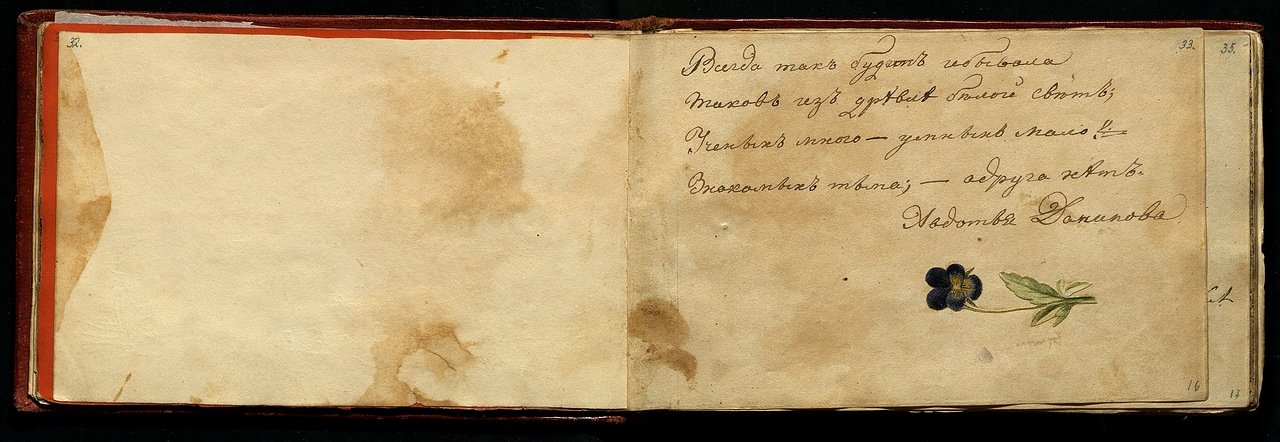 32.
33.
35.
Всегда такъ будетъ ибывало
Таковъ изъ древлѣ бѣлой свѣтъ;
Ученыхъ много — умныхъ мало!
Знакомыхъ тьма; — адруга нѣтъ.
Авдотья Данилова
16
17